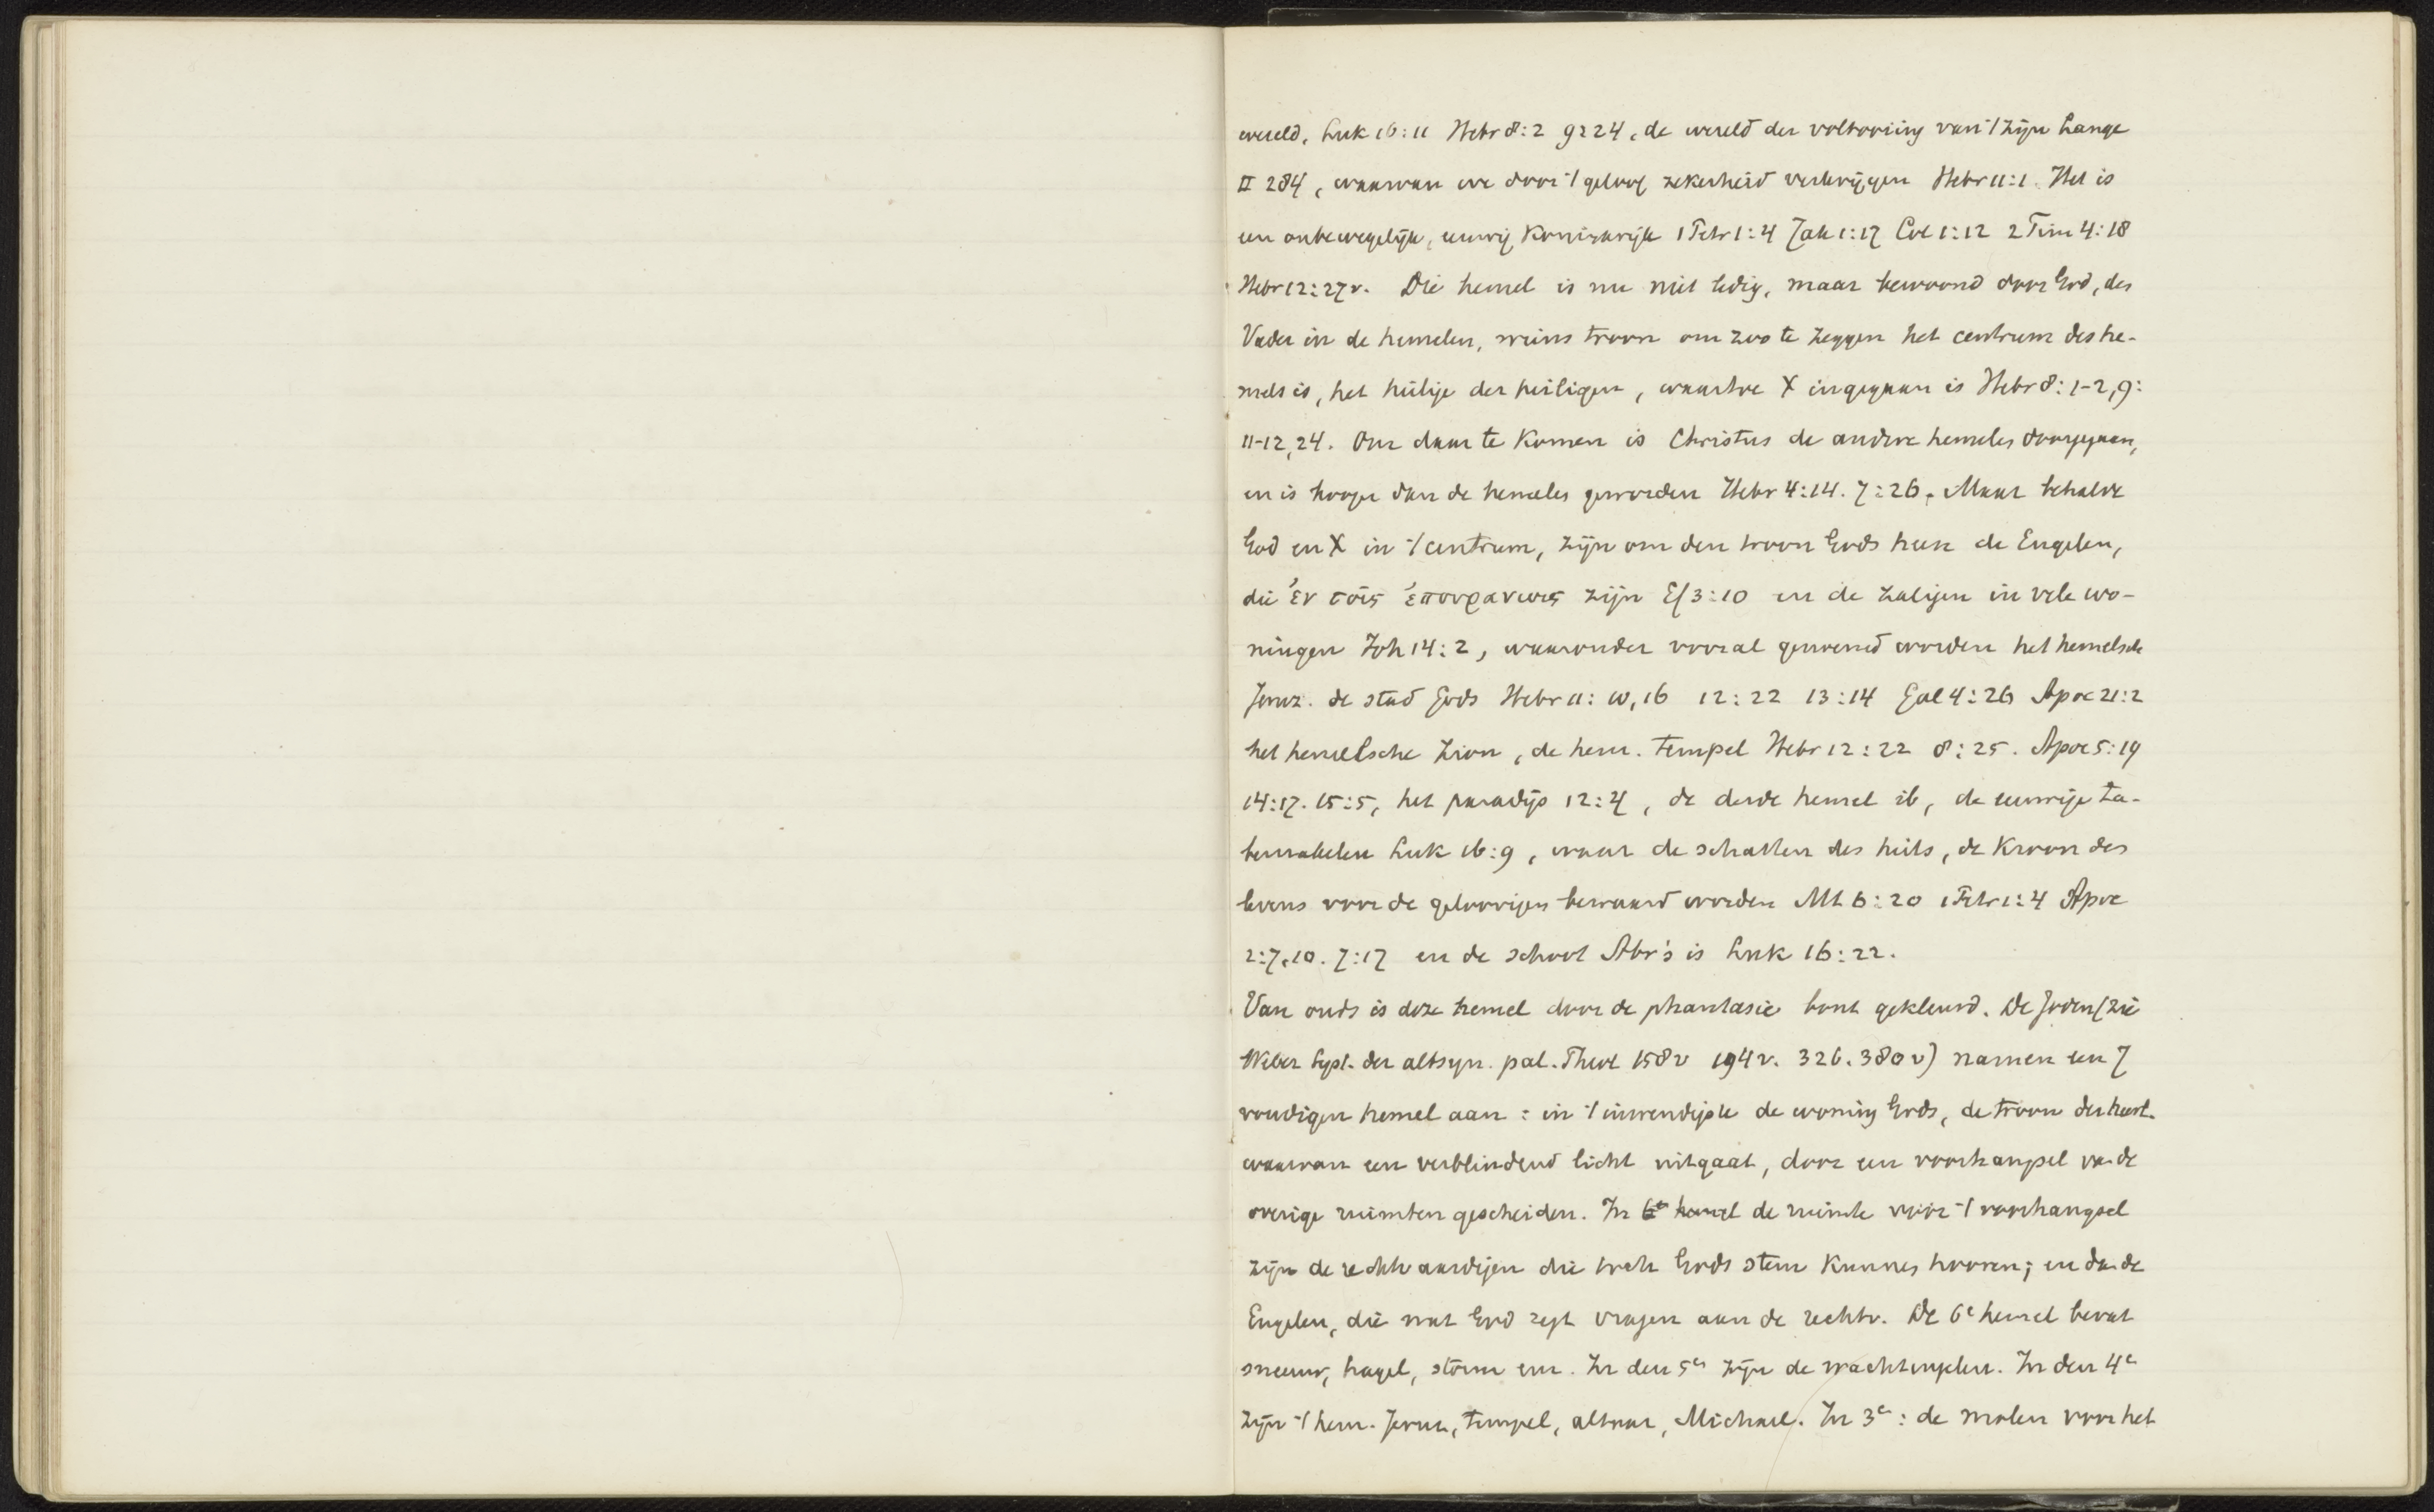 wereld, Luk 16:11 Hebr 8:2 9:24, de wereld der voltooiing van 't zijn Lange
II 284, waarvan we door 't geloof zekerheid verkrijgen Hebr 11:1. Het is
een onbewegelijk, eeuwig Koninkrijk 1 Petr 1:4 Jak 1:17 Col 1:12 2 Tim 4:18
Hebr 12:27v. Die hemel is nu niet ledig, maar bewoond door God, des
Vader in de hemelen, wiens troon om zoo te zeggen het centrum des he-
mels is, het heilige der heiligen, waartoe X ingegaan is Hebr 8:1-2, 9:
11-12, 24. Om daar te komen is Christus de andere hemelen doorgegaan,
en is hooger dan de hemelen geworden Hebr 4:14. 7:26. Maar behalve
God en X in 't centrum, zijn om den troon Gods heen de Engelen,
die ἐν τοῖς ἐπουρανιοις zijn Ef 3:10 en de zaligen in vele wo-
ningen Joh 14:2, waaronder vooral genoemd worden het hemelsche
Jeruz. de stad Gods Hebr 11:10, 16 12:22 13:14 Gal 4:26 Apoc 21:2
het hemelsche Zion, de hem. tempel Hebr 12:22 8:25. Apoc 5:19
14:17. 15:5, het paradijs 12:4, de derde hemel ib, de eeuwige ta-
bernakelen Luk 16:9, waar de schatten des heils, de Kroon des
levens voor de geloovigen bewaard worden Mt 6:20 1 Petr 1:4 Apoc
2:7,10. 7:17 en de schoot Abr's is Luk 16:22.
Van ouds is deze hemel door de phantasie bont gekleurd. De Joden (zie
Weber Syst. der altsyn. pal. Theol 158v 194v. 326. 380v) namen een 7
voudigen hemel aan: in 't inwendigste de woning Gods, de troon der heerl.
waarvan een verblindend licht uitgaat, door een voorhangsel v.d. de
overige ruimten gescheiden. In 6e hemel de ruimte vóór 't voorhangsel
zijn de rechtvaardigen die toch Gods stem kunnen hooren; en dan de
Engelen, die wat God zegt vragen aan de rechtv. De 6e hemel bevat
sneeuw, hagel, storm enz. In den 5en zijn de wachtengelen. In den 4e
zijn 't hem. Jeruz, tempel, altaar, Michael. In 3e: de molen voor het